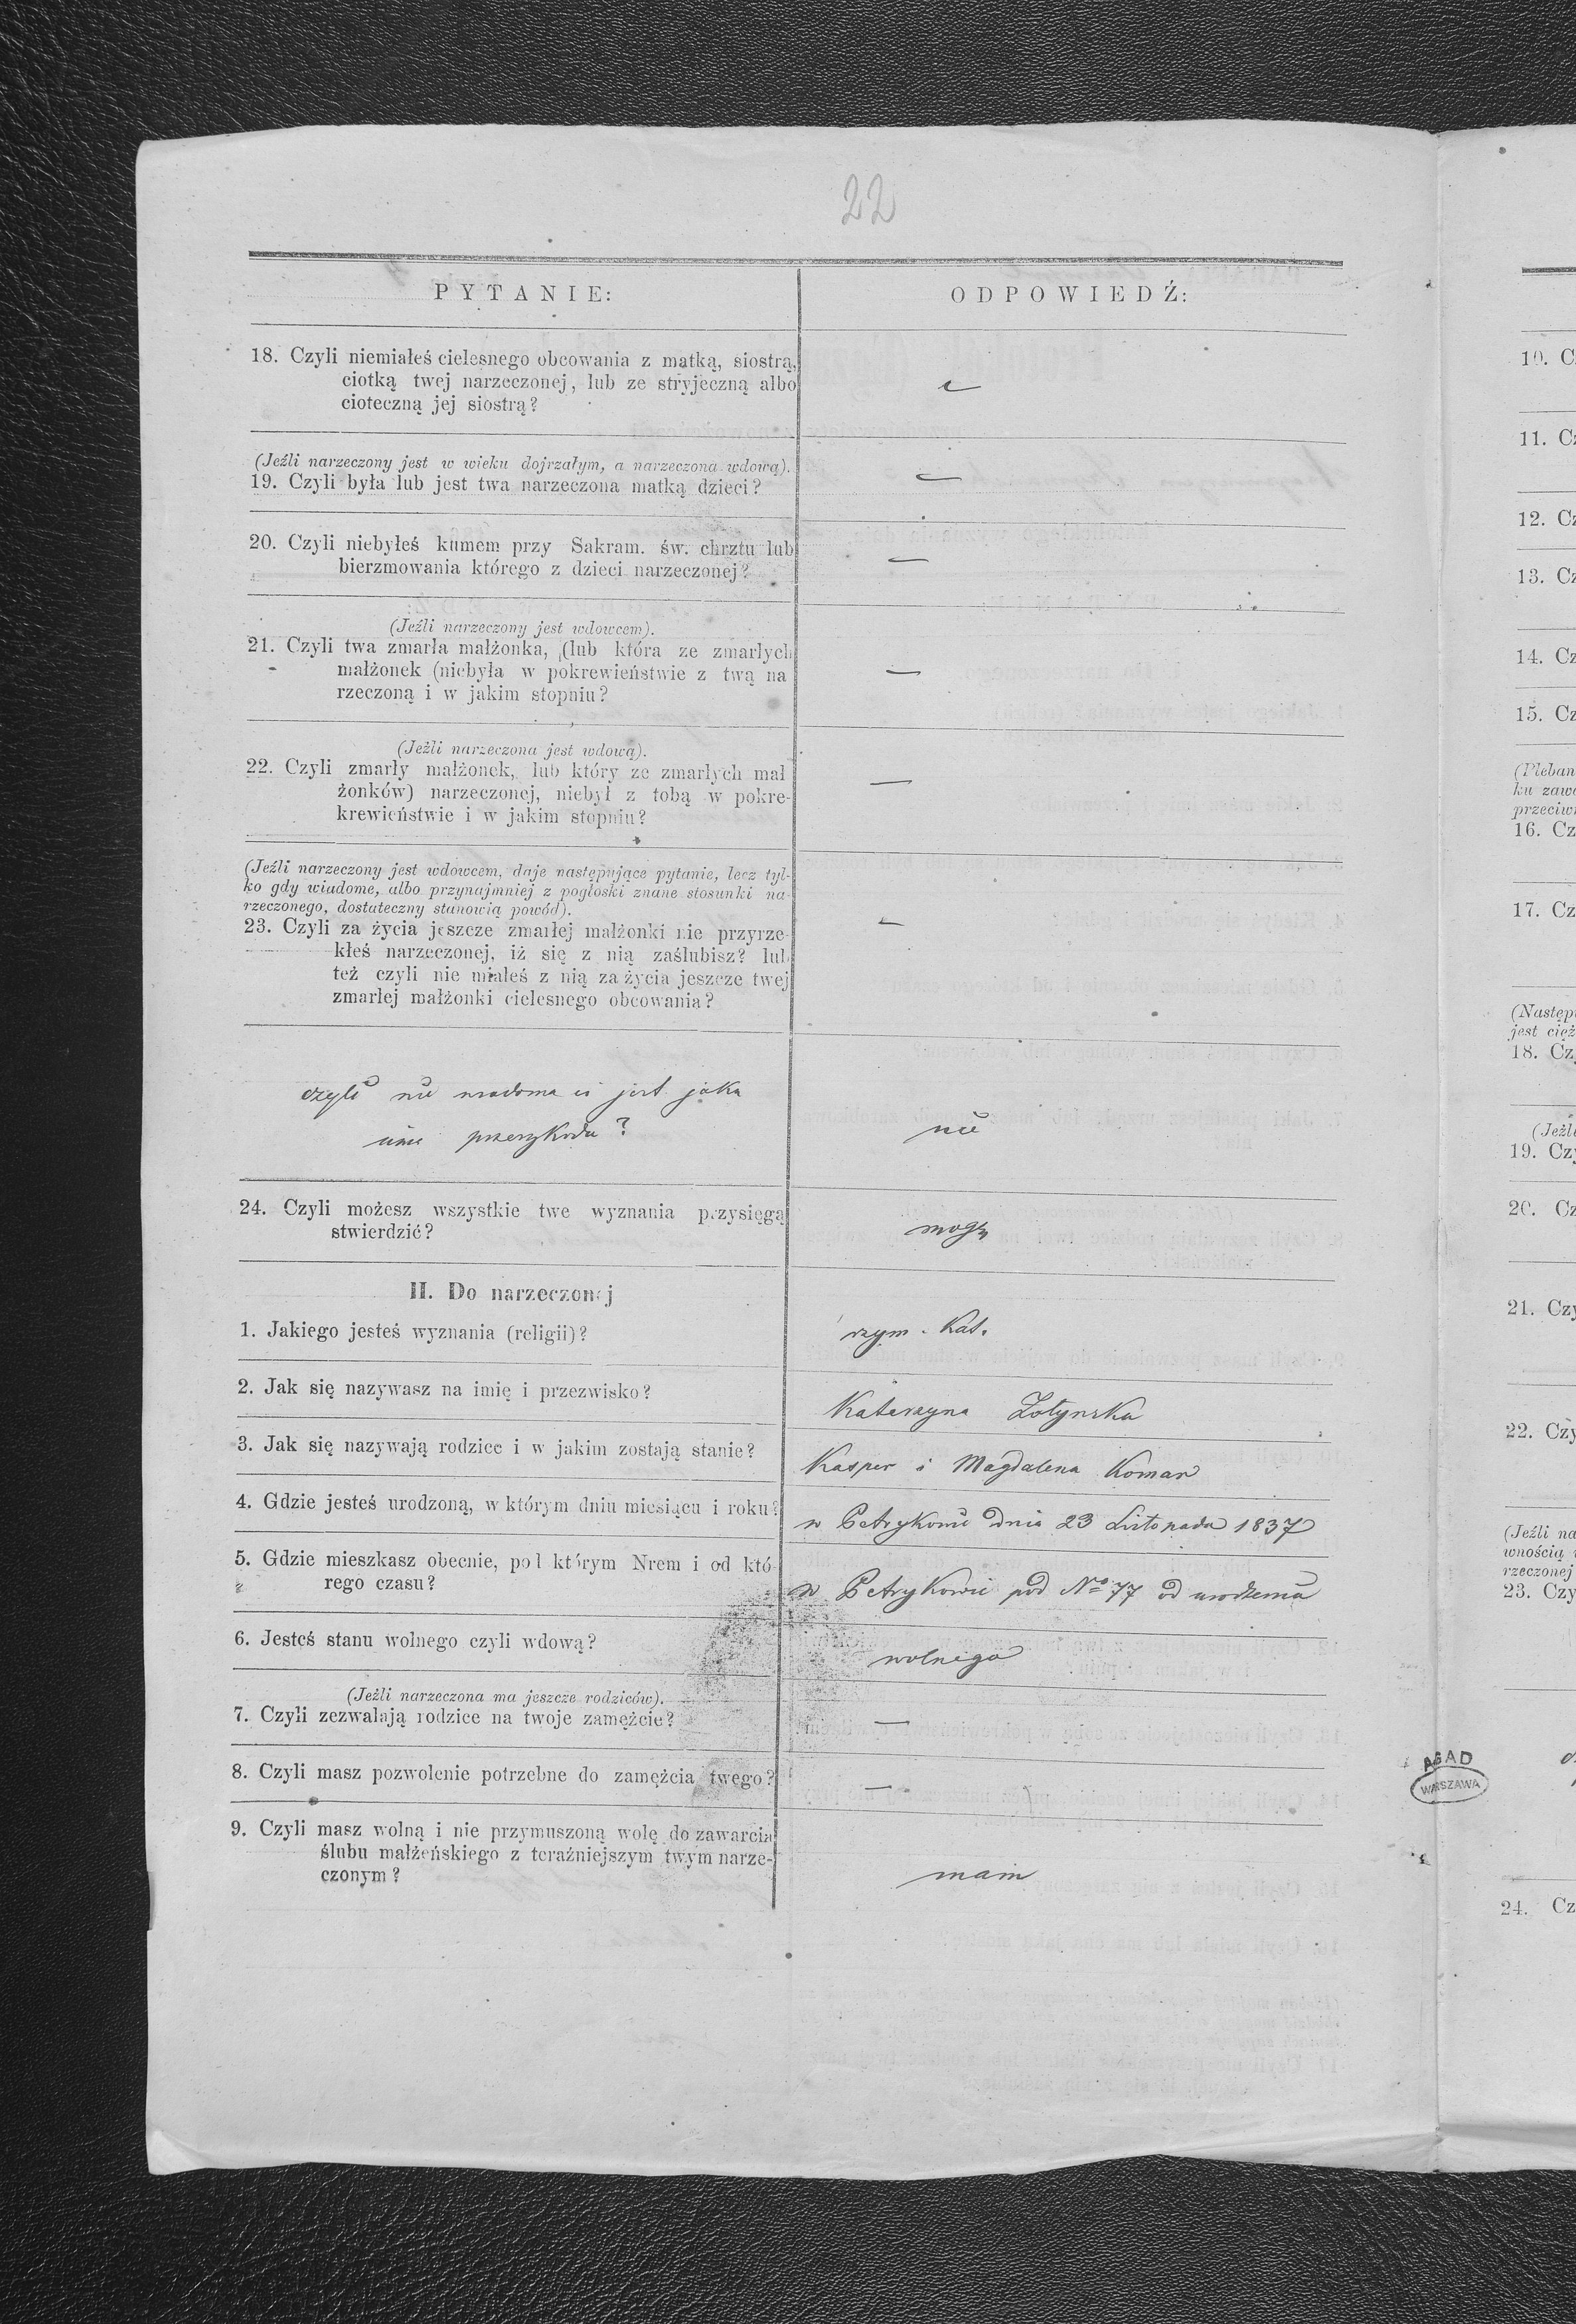 22
PYTANIE:
ODPOWIEDŹ:
18. Czyli niemiałeś cielesnego obcowania z matką, siostrą,
ciotką twej narzeczonej, lub ze stryjeczną albo
cioteczną jej siostrą?
—
(Jeźli narzeczony jest w wieku dojrzałym, a narzeczona wdową).
19. Czyli była lub jest twa narzeczona matką dzieci?
—
20. Czyli niebyłeś kumem przy Sakram. św. chrztu lub
bierzmowania którego z dzieci narzeczonej?
—
(Jeźli narzeczony jest wdowcem).
21. Czyli twa zmarła małżonka, (lub która ze zmarłych
małżonek (niebyła w pokrewieństwie z twą na
rzeczoną i w jakim stopniu?
—
(Jeźli narzeczona jest wdową).
22. Czyli zmarły małżonek, lub który ze zmarłych mał
żonków) narzeczonej, niebył z tobą w pokre-
krewieństwie i w jakim stopniu?
—
(Jeźli narzeczony jest wdowcem, daje następujące pytanie, lecz tyl-
ko gdy wiadome, albo przynajmniej z pogłoski znane stosunki na-
rzeczonego, dostateczny stanowią powód).
23. Czyli za życia jeszcze zmarłej małżonki nie przyrze-
kłeś narzeczonej, iż się z nią zaślubisz? lub
też czyli nie miałeś z nią za życia jeszcze twej
zmarłej małżonki cielesnego obcowania?
—
czyli nie wiadoma ci jest jaka
inna przeszkoda?
nie
24. Czyli możesz wszystkie twe wyznania przysięgą
stwierdzić?
mogę
II. Do narzeczonej
1. Jakiego jesteś wyznania (religii)?
rzym. Kat.
2. Jak się nazywasz na imię i przezwisko?
Katarzyna Zołynska
3. Jak się nazywają rodzice i w jakim zostają stanie?
Kasper i Magdalena Komar
4. Gdzie jesteś urodzoną, w którym dniu miesiącu i roku?
w Petrykowie dnia 23 Listopada 1837
5. Gdzie mieszkasz obecnie, pod którym Nrem i od któ-
rego czasu?
w Petrykowie pod No 77 od urodzenia
6. Jesteś stanu wolnego czyli wdową?
wolnego
(Jeźli narzeczona ma jeszcze rodziców).
7. Czyli zezwalają rodzice na twoje zamęźcie?
—
8. Czyli masz pozwolenie potrzebne do zamęźcia twego?
—
9. Czyli masz wolną i nie przymuszoną wolę do zawarcia
ślubu małżeńskiego z teraźniejszym twym narze-
czonym?
mam
10. C
11. Cz
12. Cz
13. Cz
14. Cz
15. Cz
(Pleban
ku zawa
przeciw
16. Cz
17. Cz
(Następ
jest cięż
18. Cz
(Jeźli
19. Czy
20. Cz
21. Czy
22. Czy
(Jeźli na
wnością
rzeczonej
23. Czy
AGAD
WARSZAWA
24. Cz